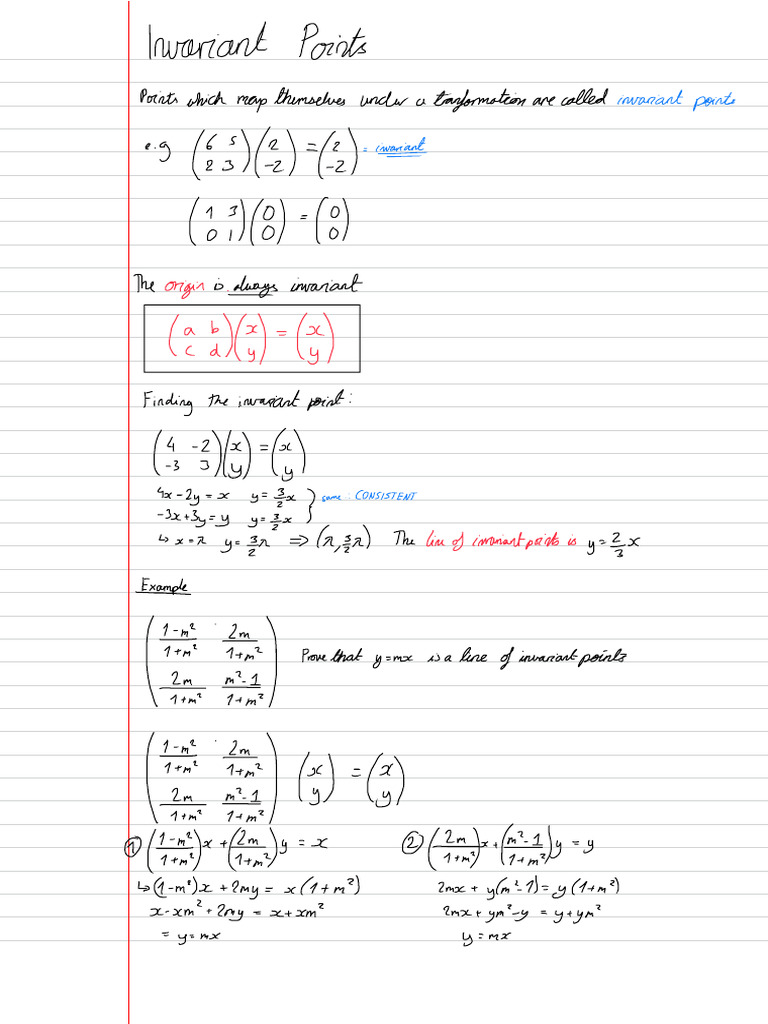 Invariant Points
Points which map themselves under a tranformation are called invariant points
e.g (6 5; 2 3)(2; -2) = (2; -2) = invariant
(1 3; 0 1)(0; 0) = (0; 0)
The origin is always invariant
(a b; c d)(x; y) = (x; y)
Finding the invariant point:
(4 -2; -3 3)(x; y) = (x; y)
4x-2y = x  y = 3/2 x } same : CONSISTENT
-3x+3y = y  y = 3/2 x
↳ x = λ  y = 3/2 λ ⇒ (λ, 3/2 λ)  The line of invariant points is y = 2/3 x
Example
((1-m²)/(1+m²) 2m/(1+m²); 2m/(1+m²) (m²-1)/(1+m²))  Prove that y=mx is a line of invariant points
((1-m²)/(1+m²) 2m/(1+m²); 2m/(1+m²) (m²-1)/(1+m²)) (x; y) = (x; y)
① ((1-m²)/(1+m²))x + (2m/(1+m²))y = x
↳ (1-m²)x + 2my = x(1+m²)
x-xm²+2my = x+xm²
= y=mx
② (2m/(1+m²))x + ((m²-1)/(1+m²))y = y
2mx + y(m²-1) = y(1+m²)
2mx + ym²-y = y+ym²
y = mx